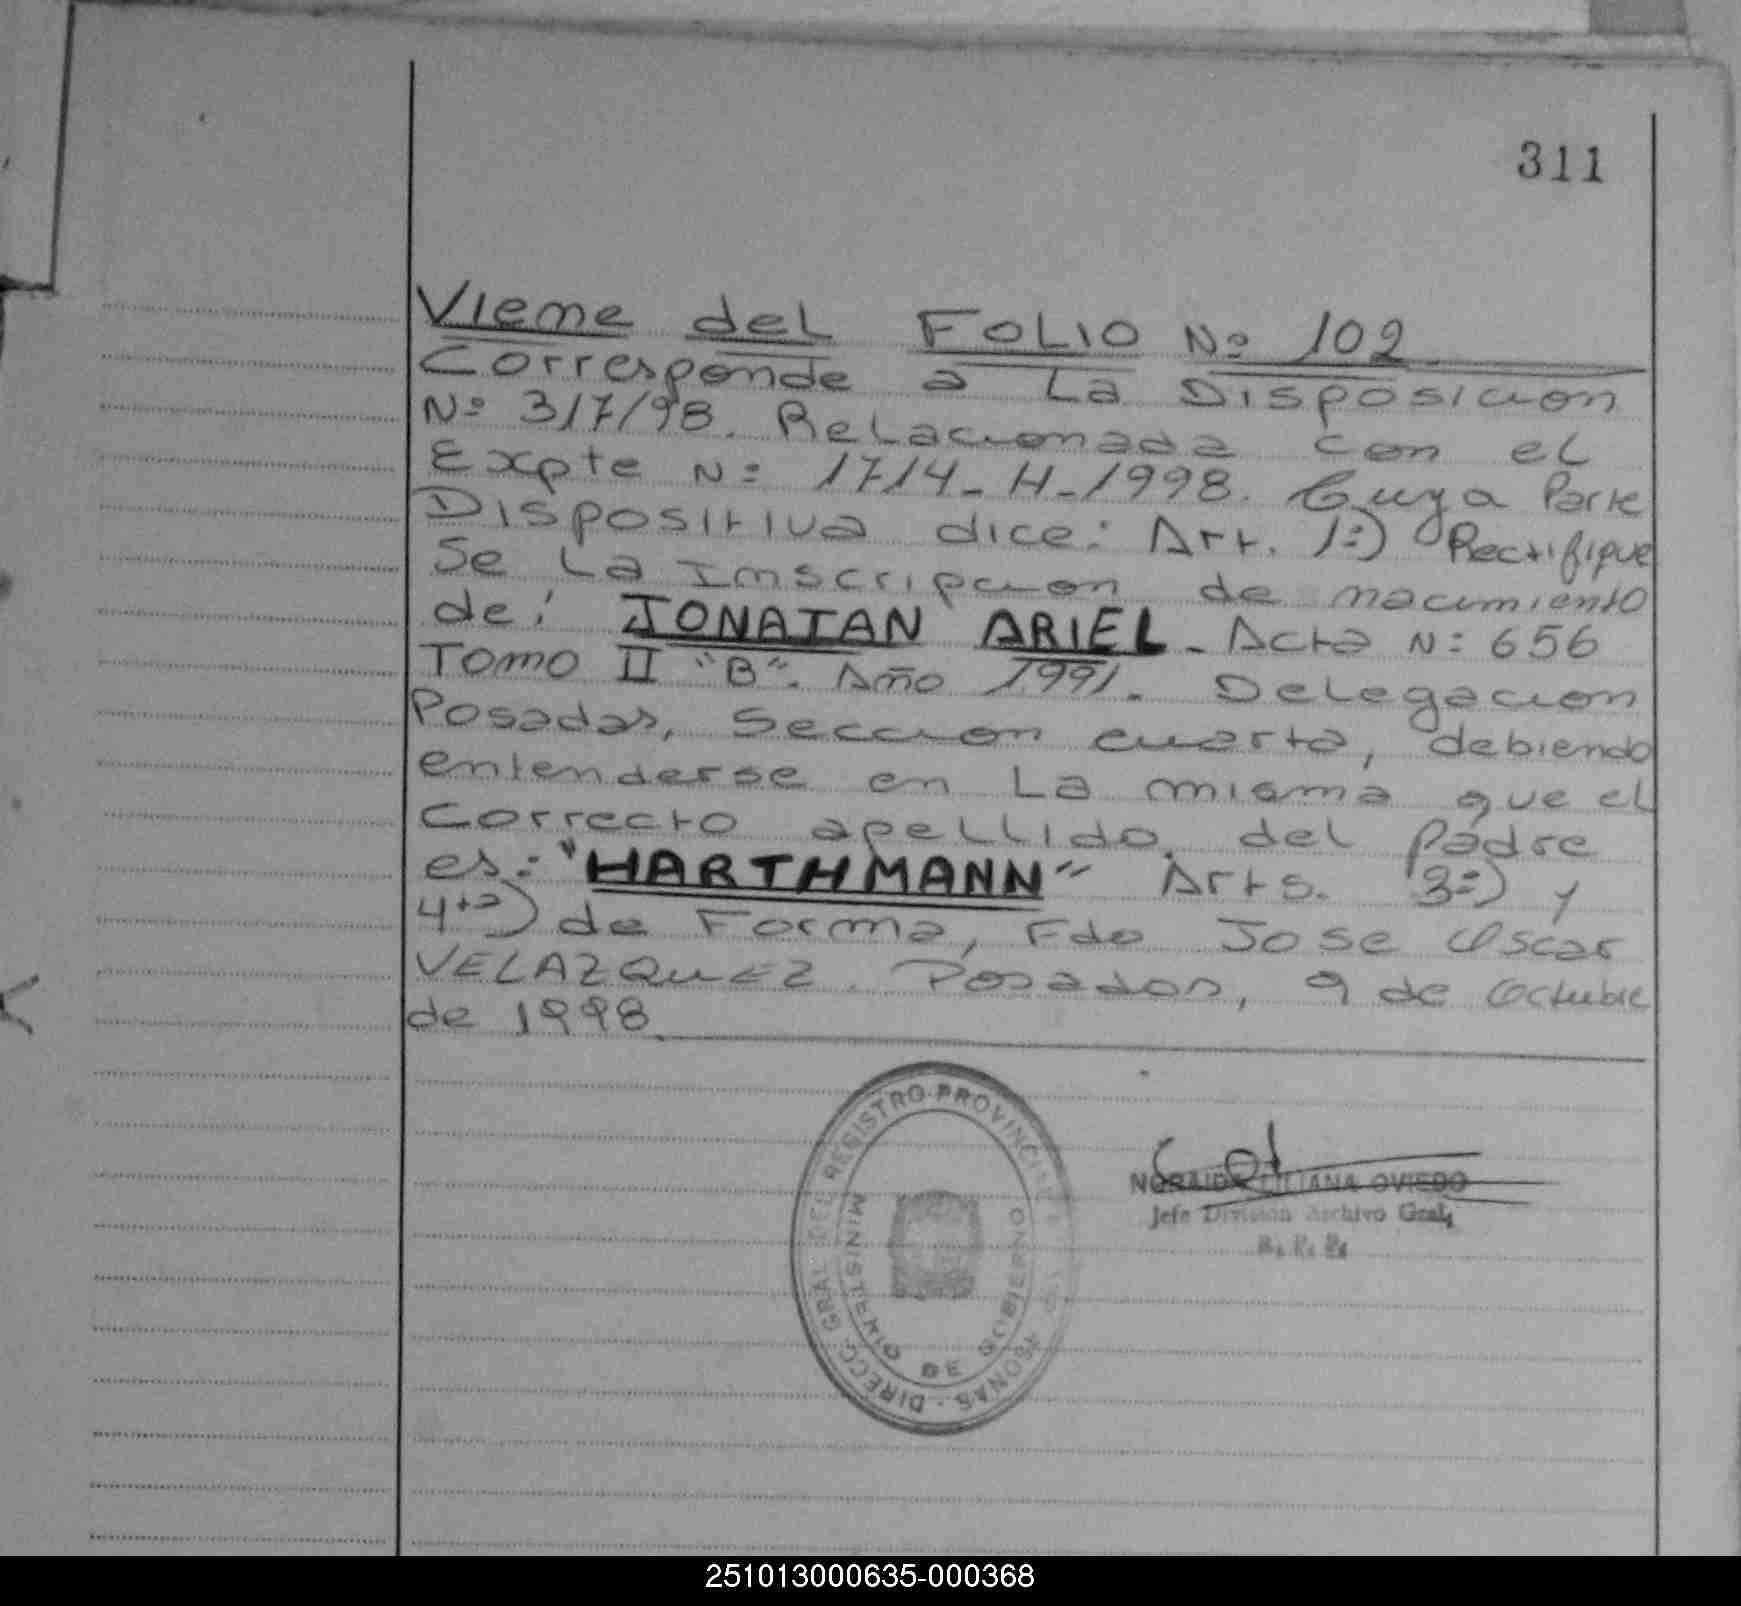 311
Viene del Folio Nº 102
Corresponde a La Disposicion
Nº 317/98. Relacionada con el
Expte Nº 1714-H-1998. Cuya Parte
Dispositiva dice: Art. 1º) Rectifique
Se La Inscripcion de nacimiento
de: JONATAN ARIEL - Acta Nº 656
Tomo II "B". Año 1991. Delegacion
Posadas, Seccion cuarta, debiendo
entenderse en La misma que el
Correcto apellido del padre
es: "HARTHMANN" Arts. 3º) y
4to) de Forma, Fdo Jose Oscar
VELAZQUEZ. Posadas, 9 de Octubre
de 1998
DIRECC. GRAL DEL REGISTRO PROVINCIAL
MINISTERIO DE GOBIERNO
NORAIDA LILIANA OVIEDO
Jefe División Archivo Gral.
R. P. P.
251013000635-000368